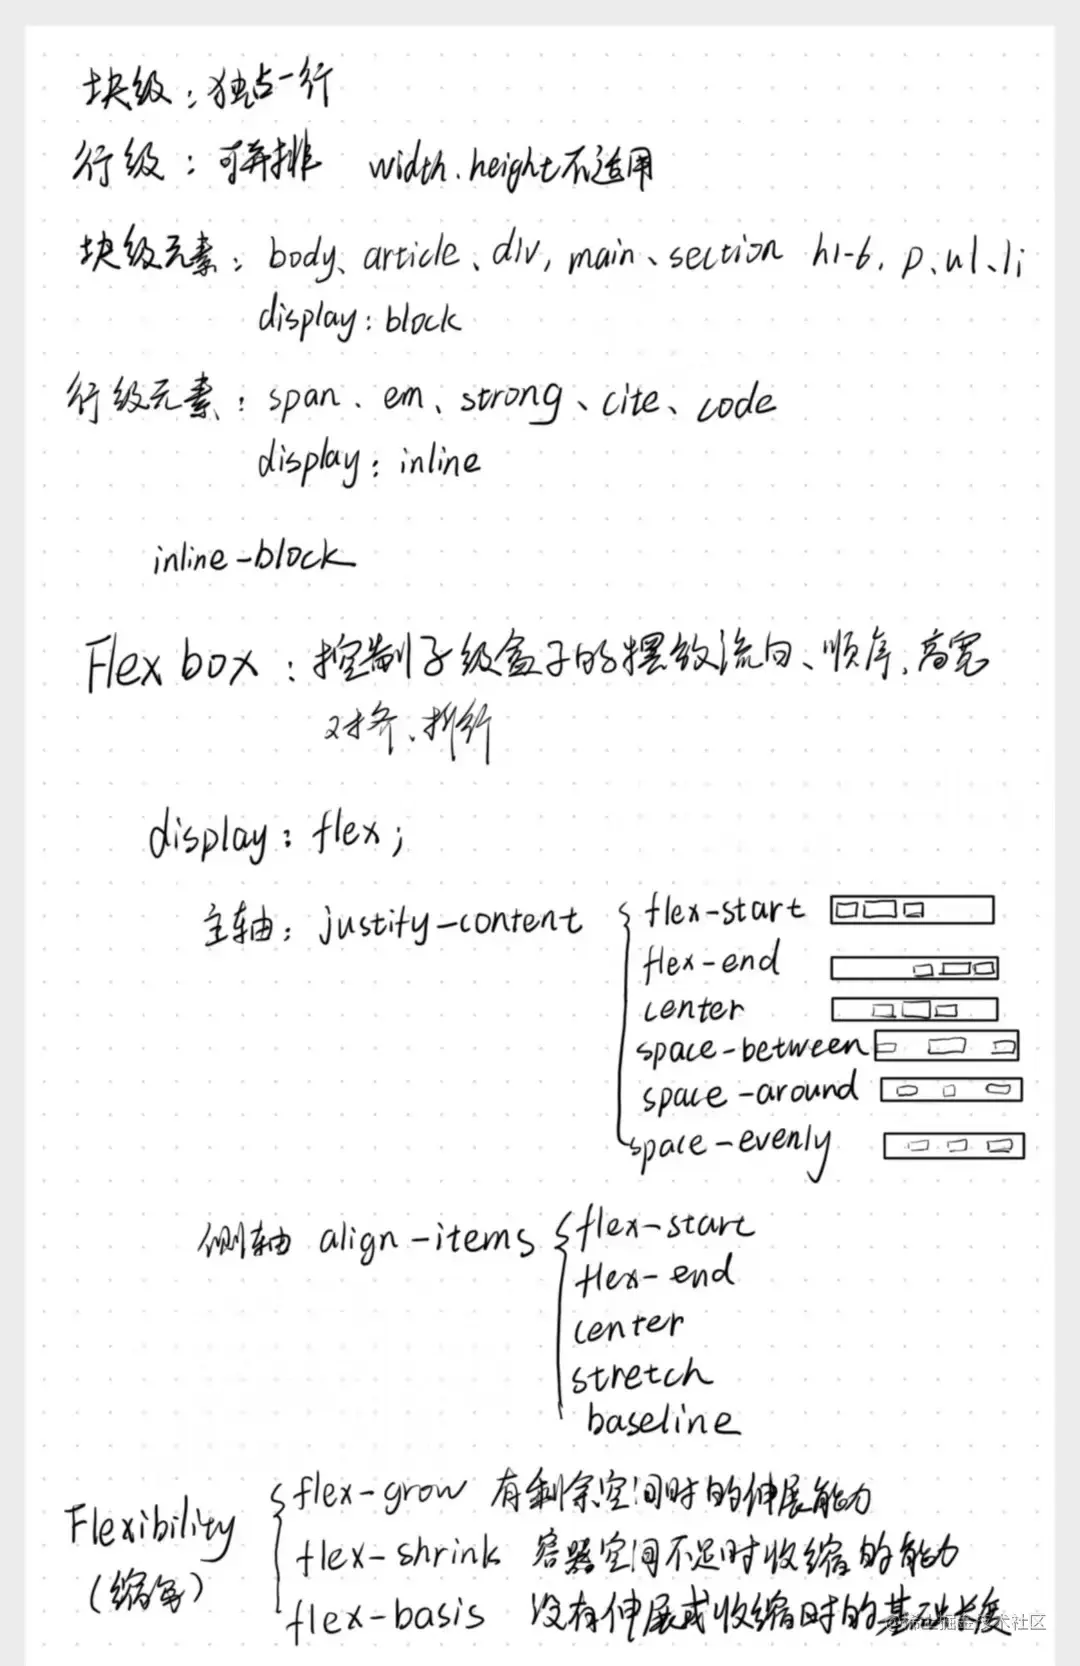 块级：独占一行
行级：可并排 width、height不适用
块级元素：body、article、div、main、section h1-6、p、ul、li
display：block
行级元素：span、em、strong、cite、code
display：inline
inline-block
Flex box：控制子级盒子的摆放流向、顺序、高宽
对齐、折行
display：flex；
主轴：justify-content
flex-start
flex-end
center
space-between
space-around
space-evenly
侧轴 align-items
flex-start
flex-end
center
stretch
baseline
Flexibility
(缩写)
flex-grow 有剩余空间时的伸展能力
flex-shrink 容器空间不足时收缩的能力
flex-basis 没有伸展或收缩时的基础长度
@稀土掘金技术社区